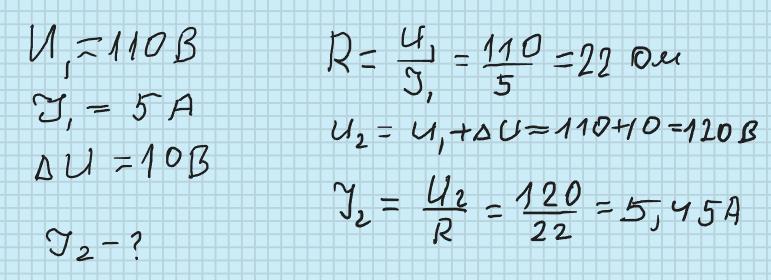 U₁ = 110 В
J₁ = 5 А
ΔU = 10 В
J₂ - ?
R = U₁/J₁ = 110/5 = 22 Ом
U₂ = U₁ + ΔU = 110 + 10 = 120 В
J₂ = U₂/R = 120/22 = 5,45 А